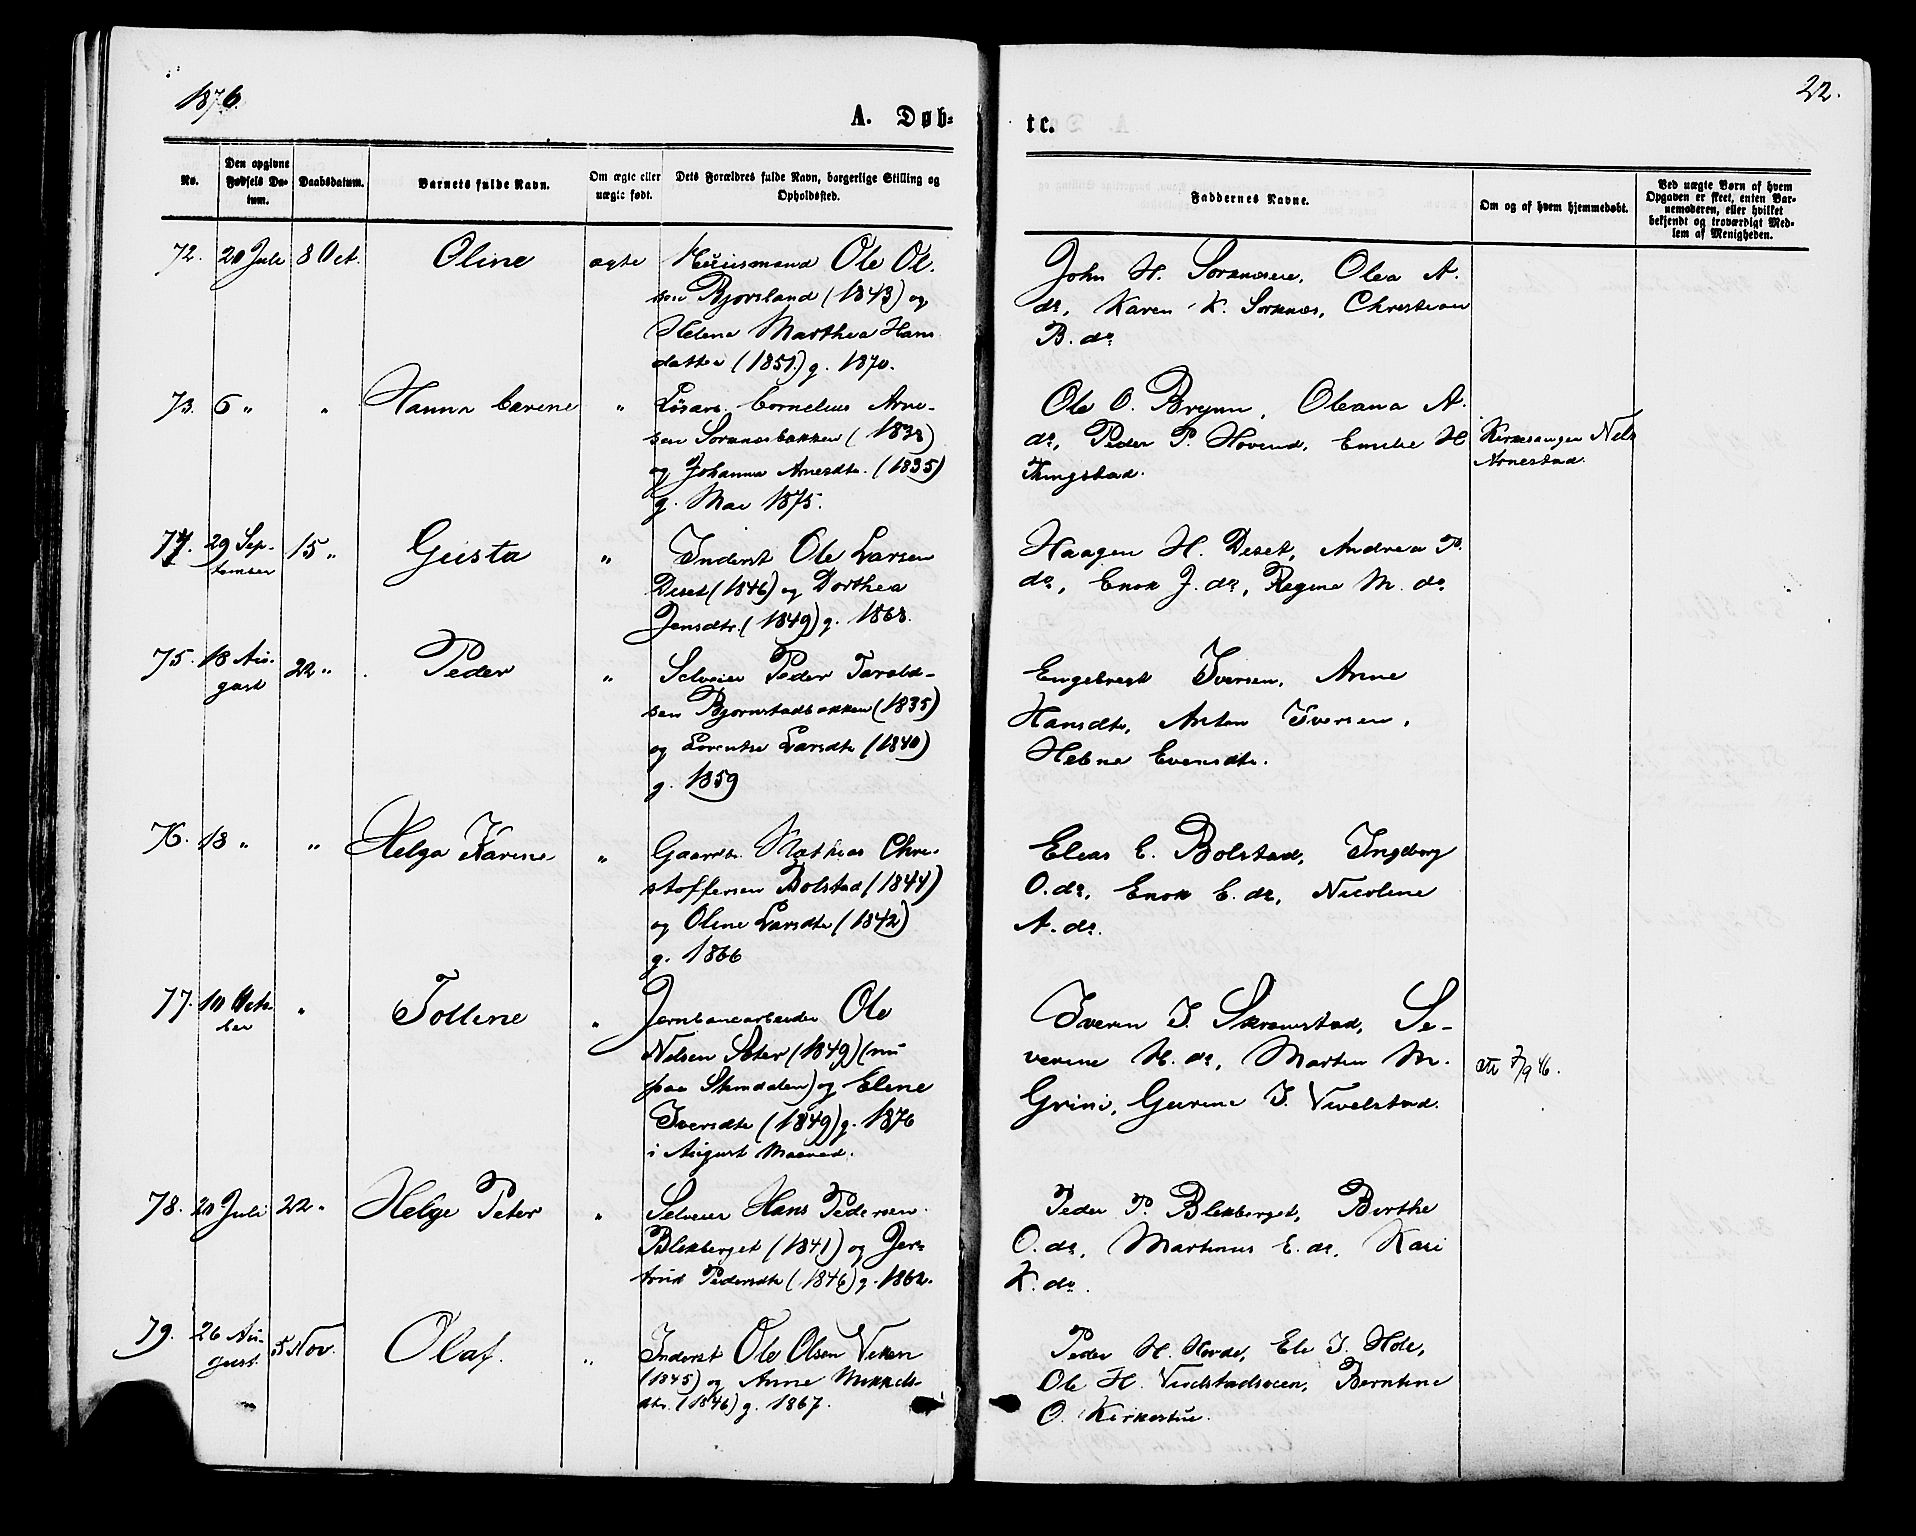 1876.
22.
A. Døb-
te.
No.
Den opgivne Fødsels Datum.
Daabsdatum.
Barnets fulde Navn.
Om ægte eller uægte født.
Dets Forældres fulde Navn, borgerlige Stilling og Opholdssted.
Faddernes Navne.
Om og af hvem hjemmedøbt.
Ved uægte Børn af hvem Opgaven er skeet, enten Barnemoderen, eller hvilket bekjendt og troværdigt Medlem af Menigheden.
72. 20 Juli 8 Oct. Oline ægte Huusmand Ole Ol-
sen Bjørsland (1843) og
Helene Marthea Hans
datter (1851) g. 1870.
John H. Sorknæs, Olea A.
do, Karen K. Sorknæs, Christian
B. do
73. 6 " " Hanna Carene " Løsarb. Cornelius Arne-
sen Sorknæsbakken (1838)
og Johanna Arnesdtr. (1835)
g. Mai 1875.
Ole O. Brynn, Oleana A.
do, Peder P. Hovend, Emilie H
Tingstad.
Kirkesanger Nils
Arnestad.
74. 29 Sep-
tember 15 " Gusta " Inderst Ole Larsen
Deset (1846) og Dorthea
Jensdtr. (1849) g. 1868.
Haagen H. Deset, Andrea P.
do, Enok J. do, Regine M. do
75. 18 Au-
gust 22 " Peder " Selveier Peder Tarald-
sen Bjørnstadbakken (1835)
og Lorentse Larsdtr (1840)
g. 1859
Engebregt Iversen, Arne
Hansdtr, Anton Iversen,
Helene Evensdtr.
76. 18 " " Helga Karine " Gaardbr. Mathias Chri-
stoffersen Bolstad (1844)
og Oline Larsdtr (1842)
g. 1866
Elias E. Bolstad, Ingeborg
O. do, Enok E. do, Nicoline
A. do.
77. 10 Octo-
ber " Tolline " Jernbanearbeider Ole
Nilsen Sæter (1849) (nu
paa Stendalen) og Eline
Iversdtr (1849) g. 1876
i August Maaned.
Iveren I. Skramstad, Se-
verine H. do, Martin M.
Grini, Gurine I. Vivelstad.
att 7/9 46.
78. 20 Juli 22 " Helge Peter " Selveier Hans Pedersen
Blekberget (1841) og Jer-
trud Pedersdtr (1846) g. 1862.
Peder P. Blekberget, Berthe
O. do, Martinus E. do, Kari
K. do.
79. 26 Au-
gust. 5 Nov. Olaf. " Inderst Ole Olsen Viken
(1845) og Anne Mikkels-
dtr. (1846) g. 1867.
Peder H. Horde, Eli I. Hole,
Ole H. Vivelstadsveen, Berntine
O. Kirkestue.